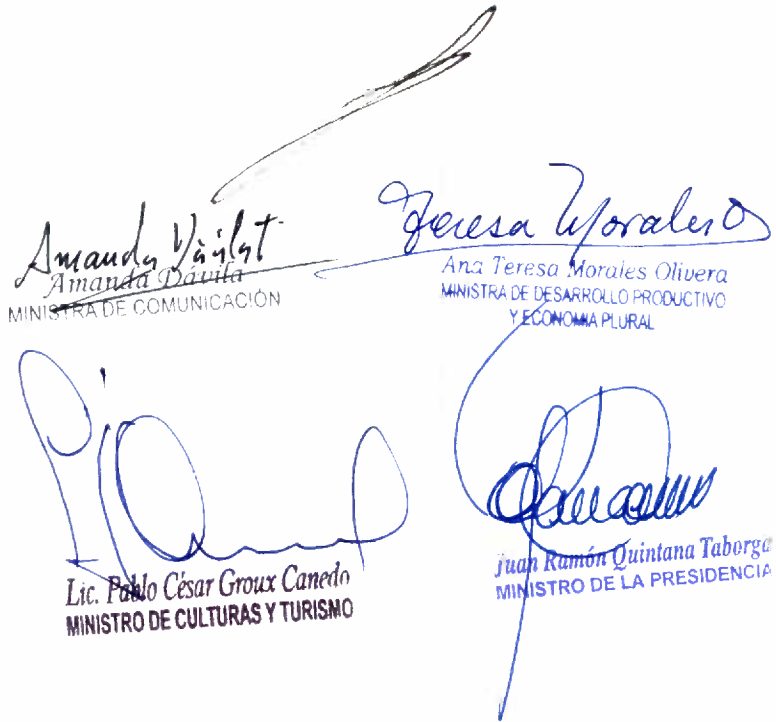 Amanda Dávila
Amanda Dávila
MINISTRA DE COMUNICACIÓN
Teresa Morales O
Ana Teresa Morales Olivera
MINISTRA DE DESARROLLO PRODUCTIVO
Y ECONOMIA PLURAL
Lic. Pablo César Groux Canedo
MINISTRO DE CULTURAS Y TURISMO
Juan Ramón Quintana Taborga
MINISTRO DE LA PRESIDENCIA